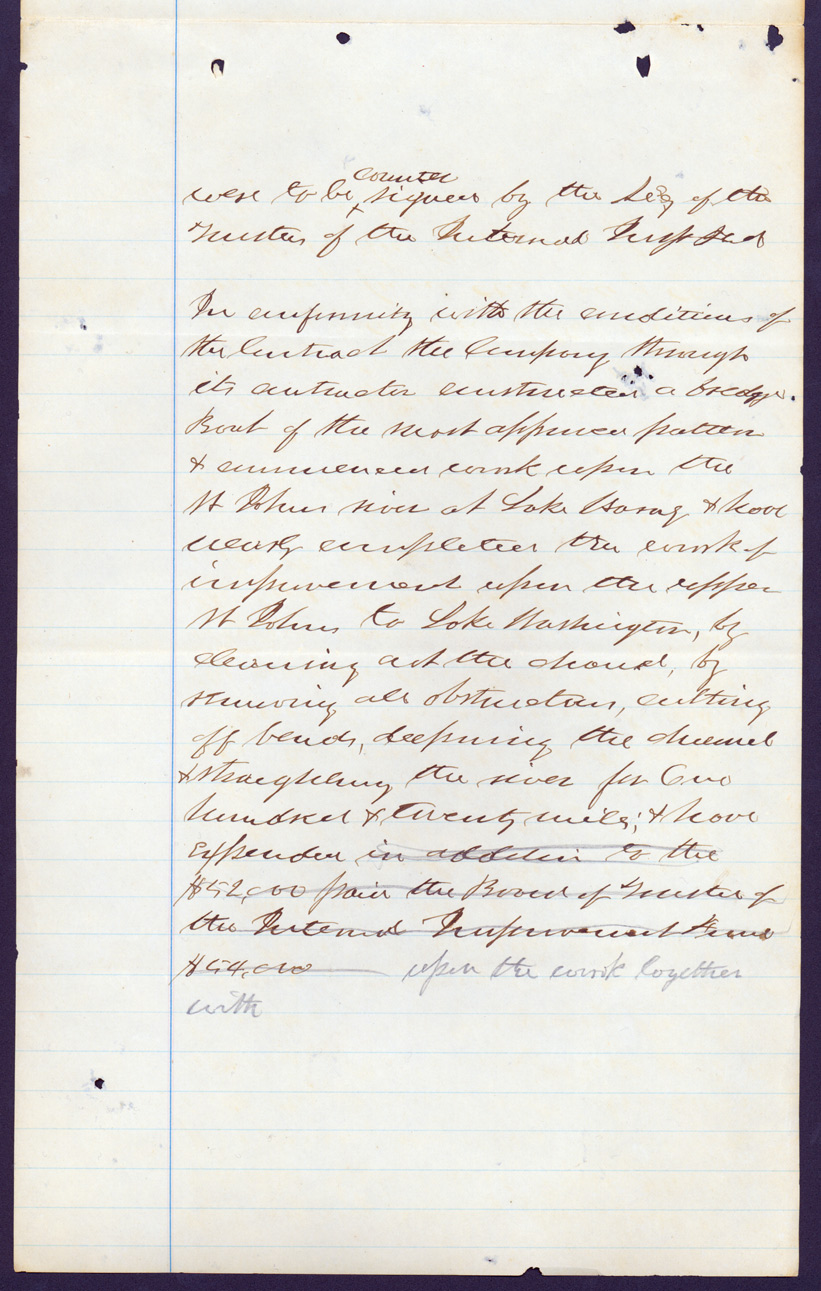 counter
were to be ‸ signed by the Secy of the
Trustees of the Internal Impt Fund
In conformity with the conditions of
the Contract the Company through
its contractor constructed a Dredge
Boat of the most approved pattern
& commenced work upon the
St Johns river at Lake Harney & have
nearly completed the work of
improvement upon the upper
St Johns to Lake Washington, by
cleaning out the channel, by
removing all obstructions, cutting
off bends, deepening the channel
& straightening the river for One
hundred & twenty miles; & have
Expended in addition to the
$52,000 paid the Board of Trustees of
the Internal Improvement Fund
$54,000 upon the work together
with